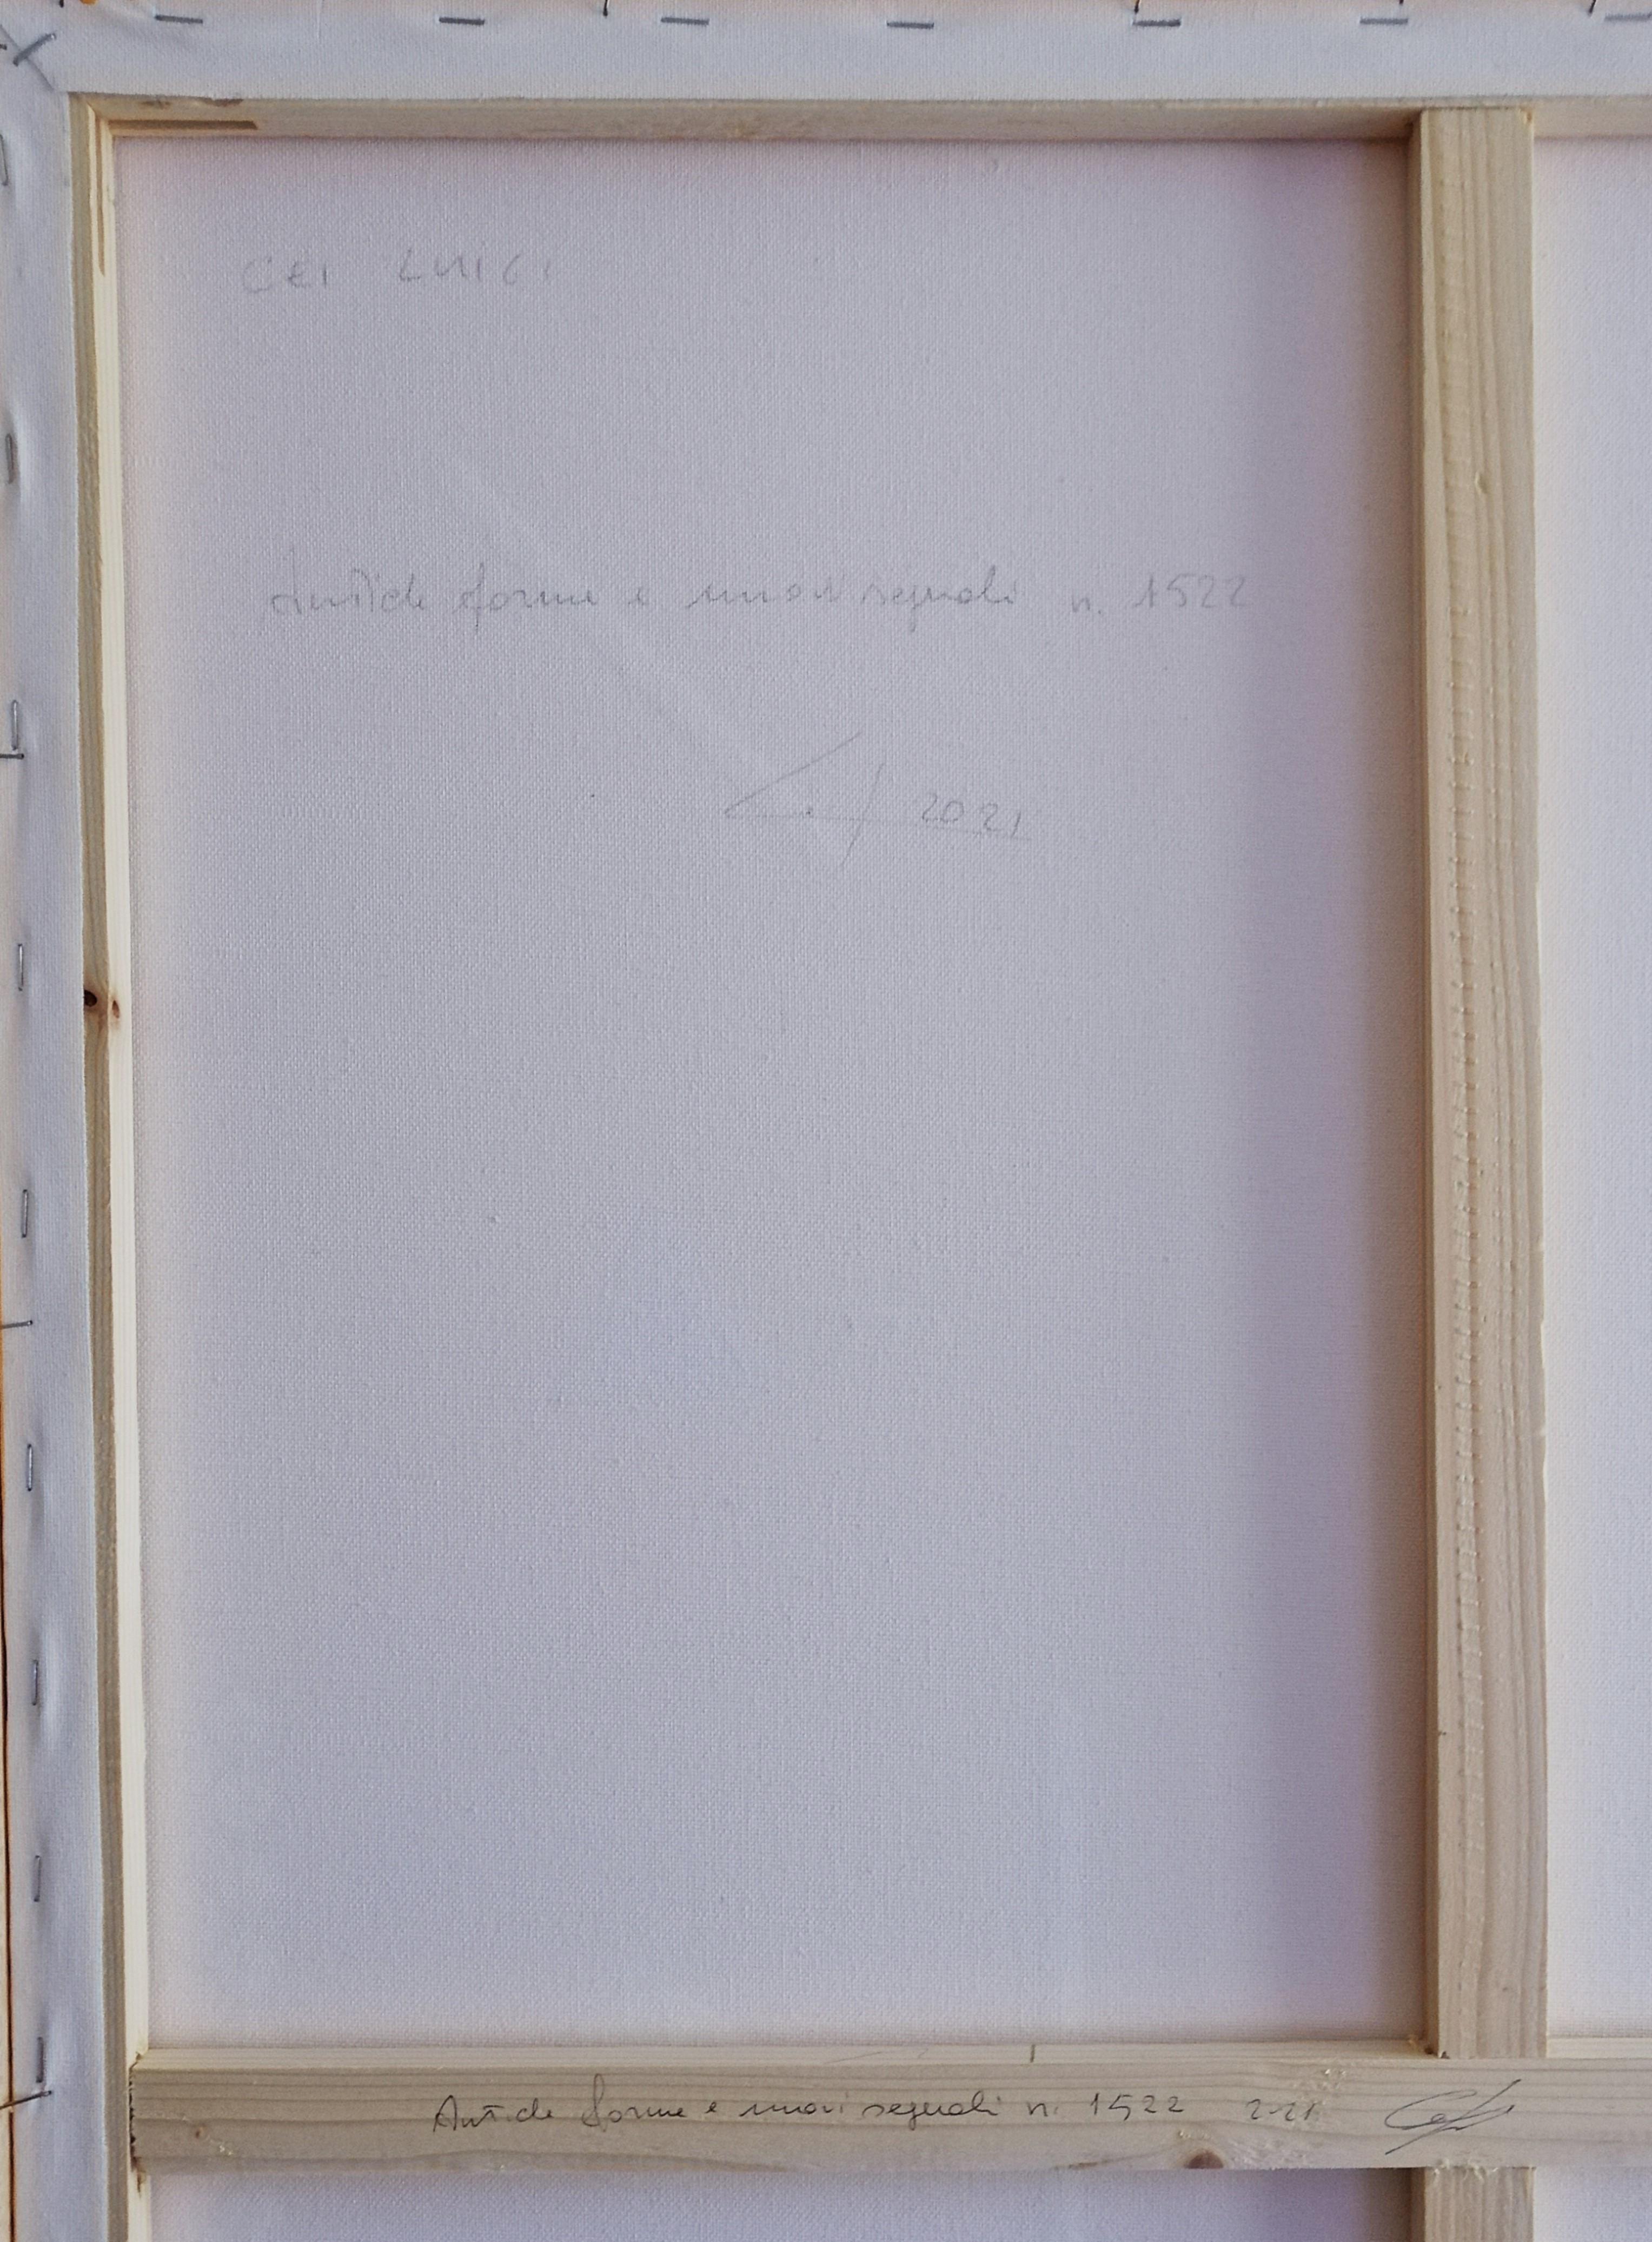 CEI LUIGI
Antiche forme e nuovi segnali n. 1522
2021
Antiche forme e nuovi segnali n. 1522 2021